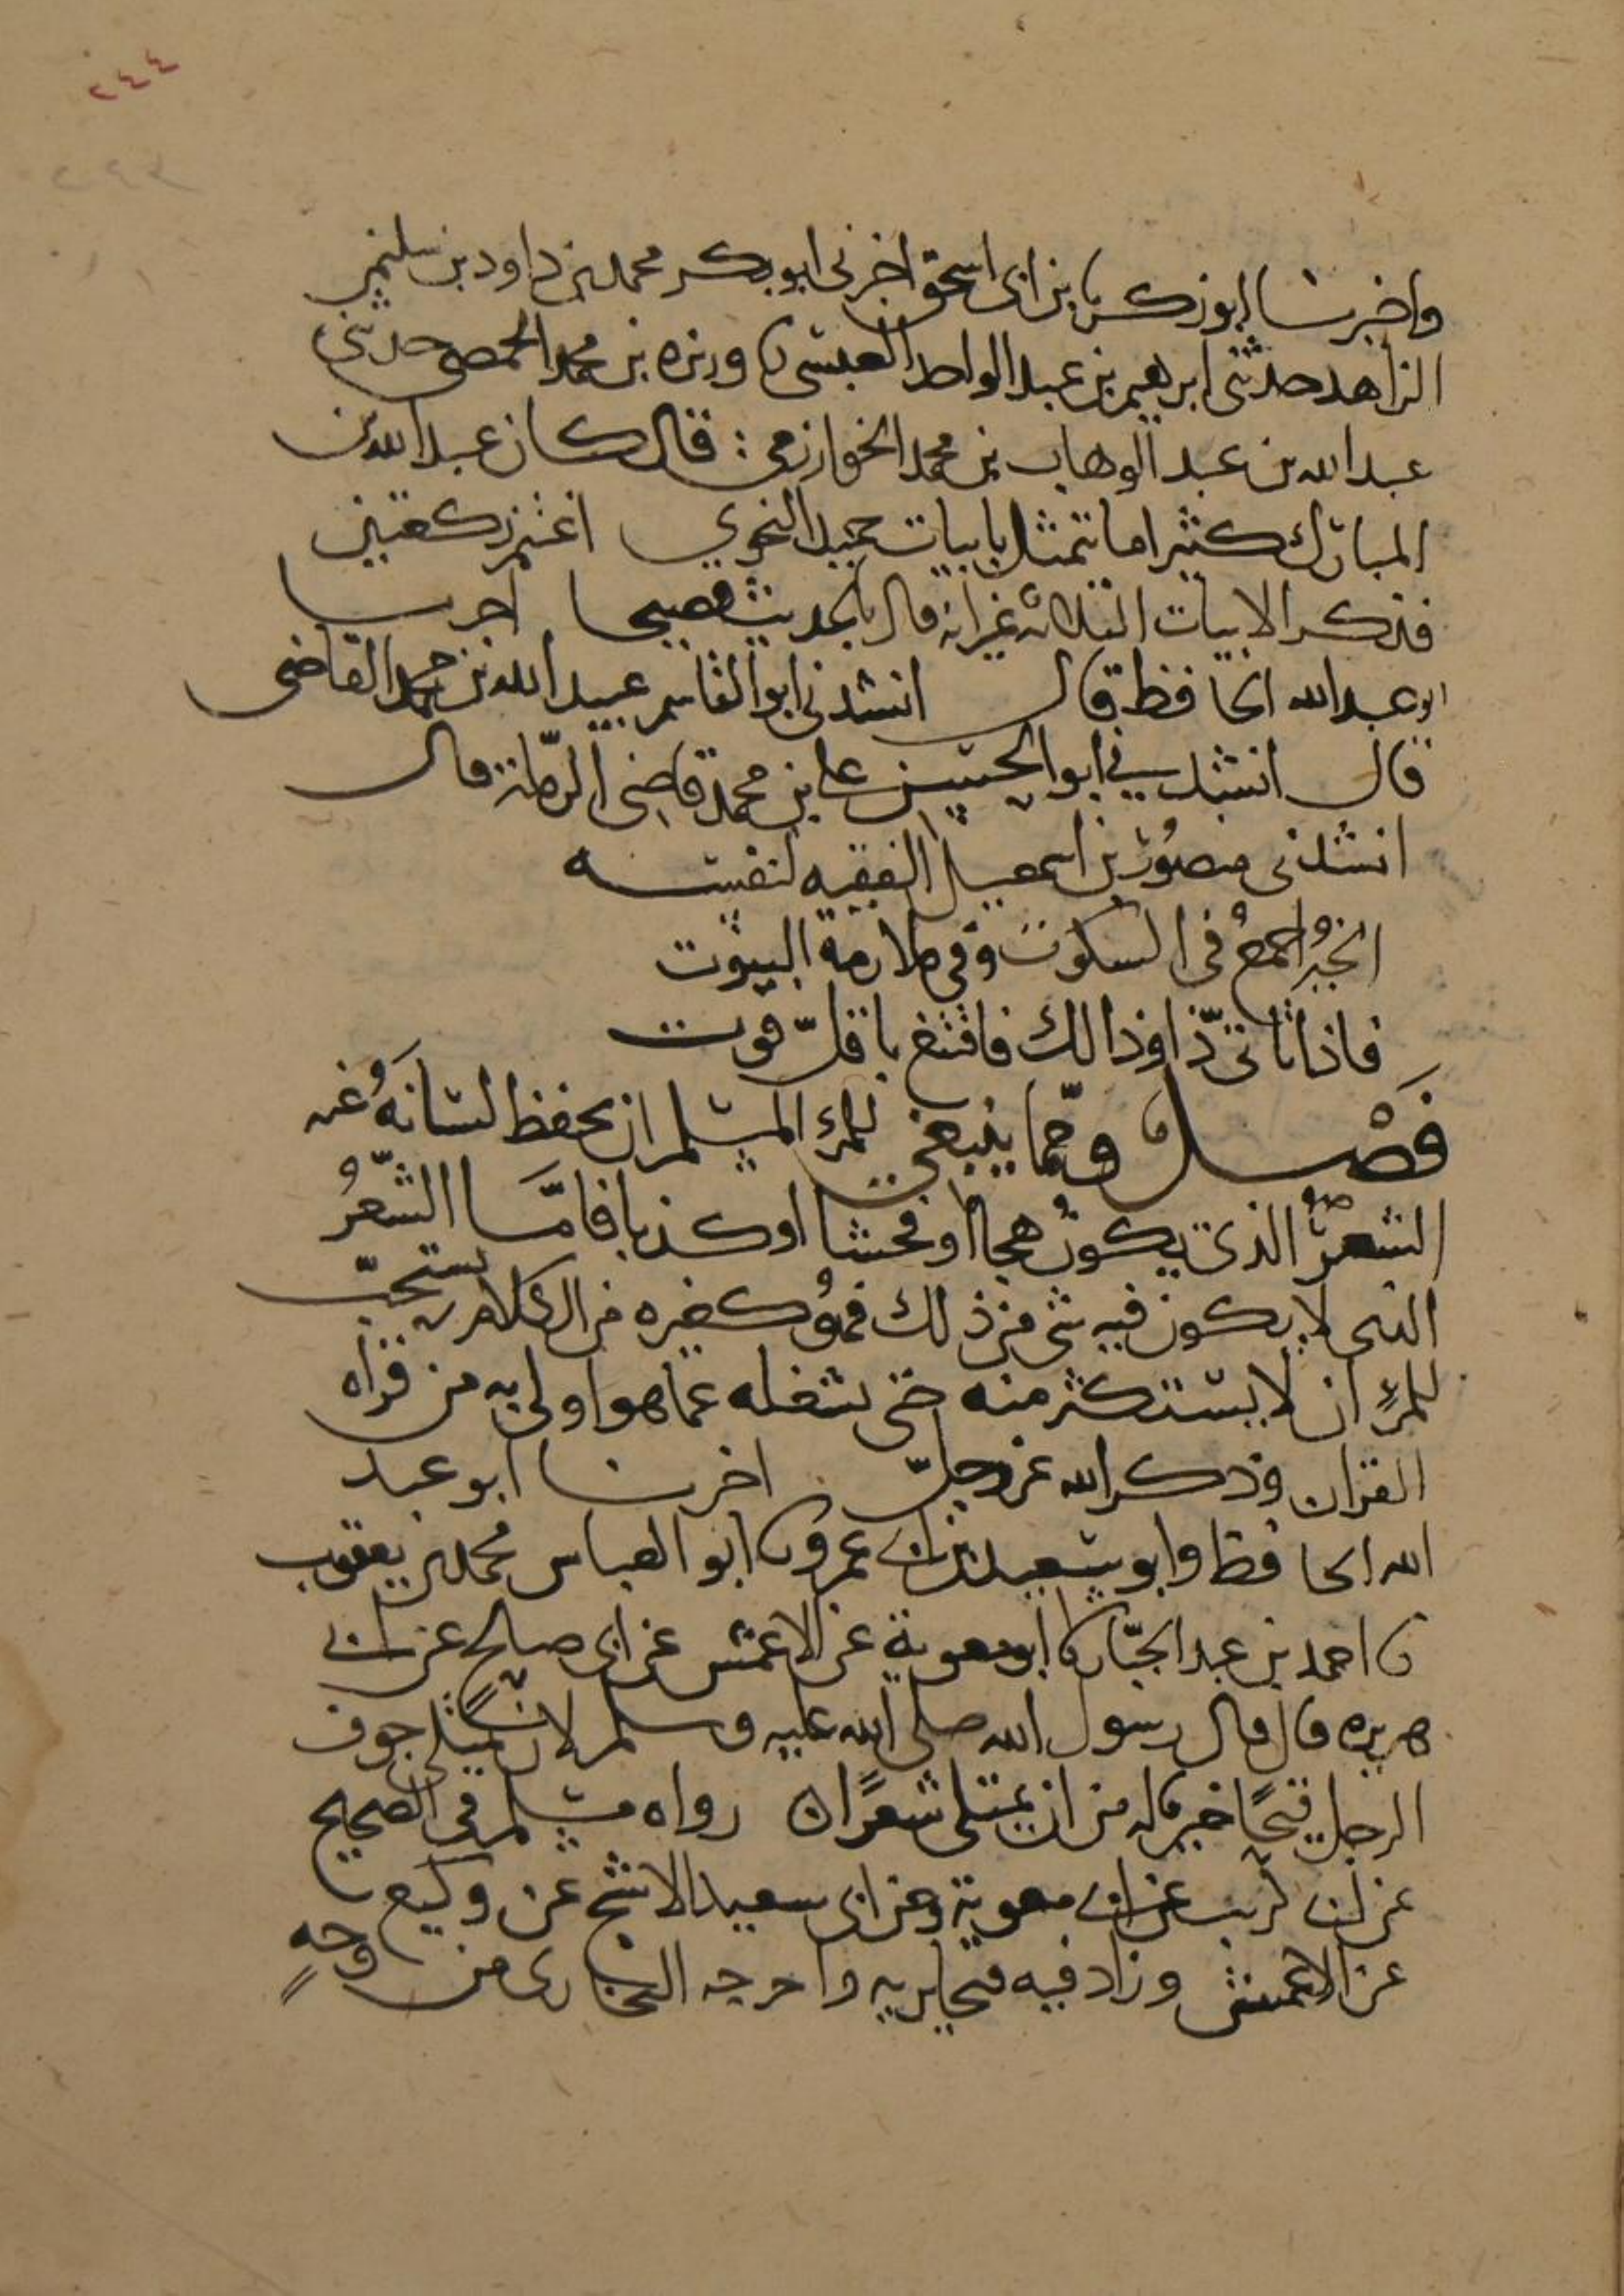 ٢٤٤
واخبرنا ابو زكريا بن ابى اسحق اخبرنى ابو بكر محمد بن داود بن سليمن
الزاهد حدثنى ابرهيم بن عبد الواحد العبسى ورىزه بن محمد الحمصى حدثنى
عبد الله بن عبد الوهاب بن محمد الخوارزمى : قال كان عبد الله بن
المبارك كثيرا ما يتمثل بابيات حميد النحوي اغتنم ركعتين
فذكر الابيات الثلاثه غير انه قال بالحديث فصيحا اخبرنا
ابو عبد الله الحافظ قال انشدنى ابو القاسم عبيد الله بن محمد القاضى
قال انشدني ابو الحسين على بن محمد قاضى الرملة قال
انشدنى منصور بن اسمعيل الفقيه لنفسه
الخير اجمع فى السكوت وفي ملازمة البيوت
فاذا تاتى ذا وذا لك فاقنع باقل قوت
فصل ومما ينبغي للمرء المسلم ان يحفظ لسانه عنه
الشعر الذي يكون هجا او فحشا او كذبا فاما الشعر
الذى لا يكون فيه شى من ذلك فهو كغيره من الكلام يستحب
للمرء ان لا يستكثر منه حتى يشغله عما هو اولى به من قراه
القران وذكر الله عز وجل اخبرنا ابو عبد
الله الحافظ وابو سعيد بن ابى عمرو نا ابو العباس محمد بن يعقوب
نا احمد بن عبد الجبار نا ابو معوية عن الاعمش عن ابى صالح عن ابى
هريره قال قال رسول الله صلى الله عليه وسلم لان يمتلى جوف
الرجل قيحا خير له من ان يمتلى شعرا رواه مسلم فى الصحيح
عن ابى كريب عن ابى معوية وعن ابى سعيد الاشج عن وكيع
عن الاعمش وزاد فيه قيحا يريه واخرجه البخارى من وجه